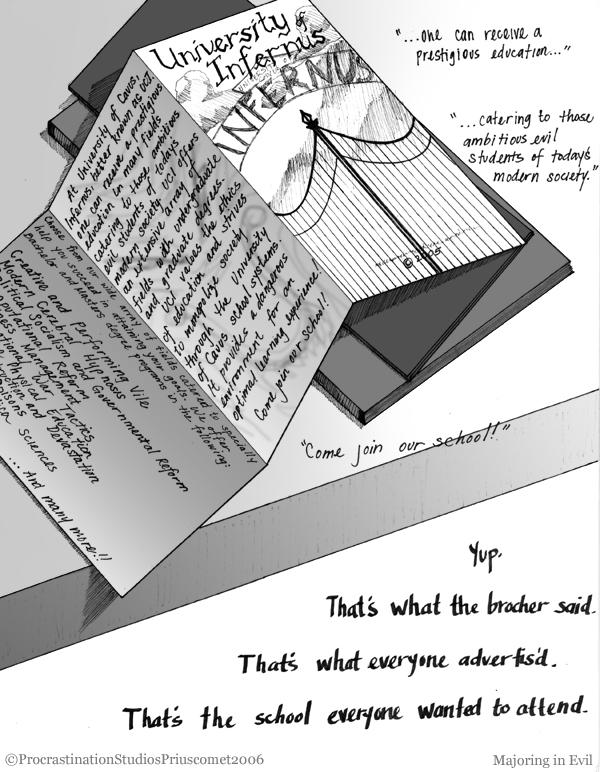 University of
Infernus
INFERNUS
© 2005
"...one can receive a
prestigious education..."
"...catering to those
ambitious evil
students of today's
modern society."
At University of Caius,
Infernus, better known as UCI,
one can receive a prestigious
education in many fields
catering to those ambitious
evil students of today's
modern society. UCI offers
an extensive array of
fields with undergraduate
and graduate degrees.
UCI values the ethics
of education and strives
to monopolize society
through the University
of Caius school systems.
It provides a dangerous
environment for an
optimal learning experience!
Come join our school!
Choose from our wide array of fields
help you succeed in training your goals. We offer
bachelor and masters degree programs in the following:
Creative and Performing Vile
Modern Cerebral Hypnosis
Political Socialism and Governmental Reform
Tactics
Education
Devestation
Sciences
... And many more!!
"Come join our school!!"
Yup.
That's what the brocher said.
That's what everyone advertis'd.
That's the school everyone wanted to attend.
©ProcrastinationStudiosPriuscomet2006
Majoring in Evil